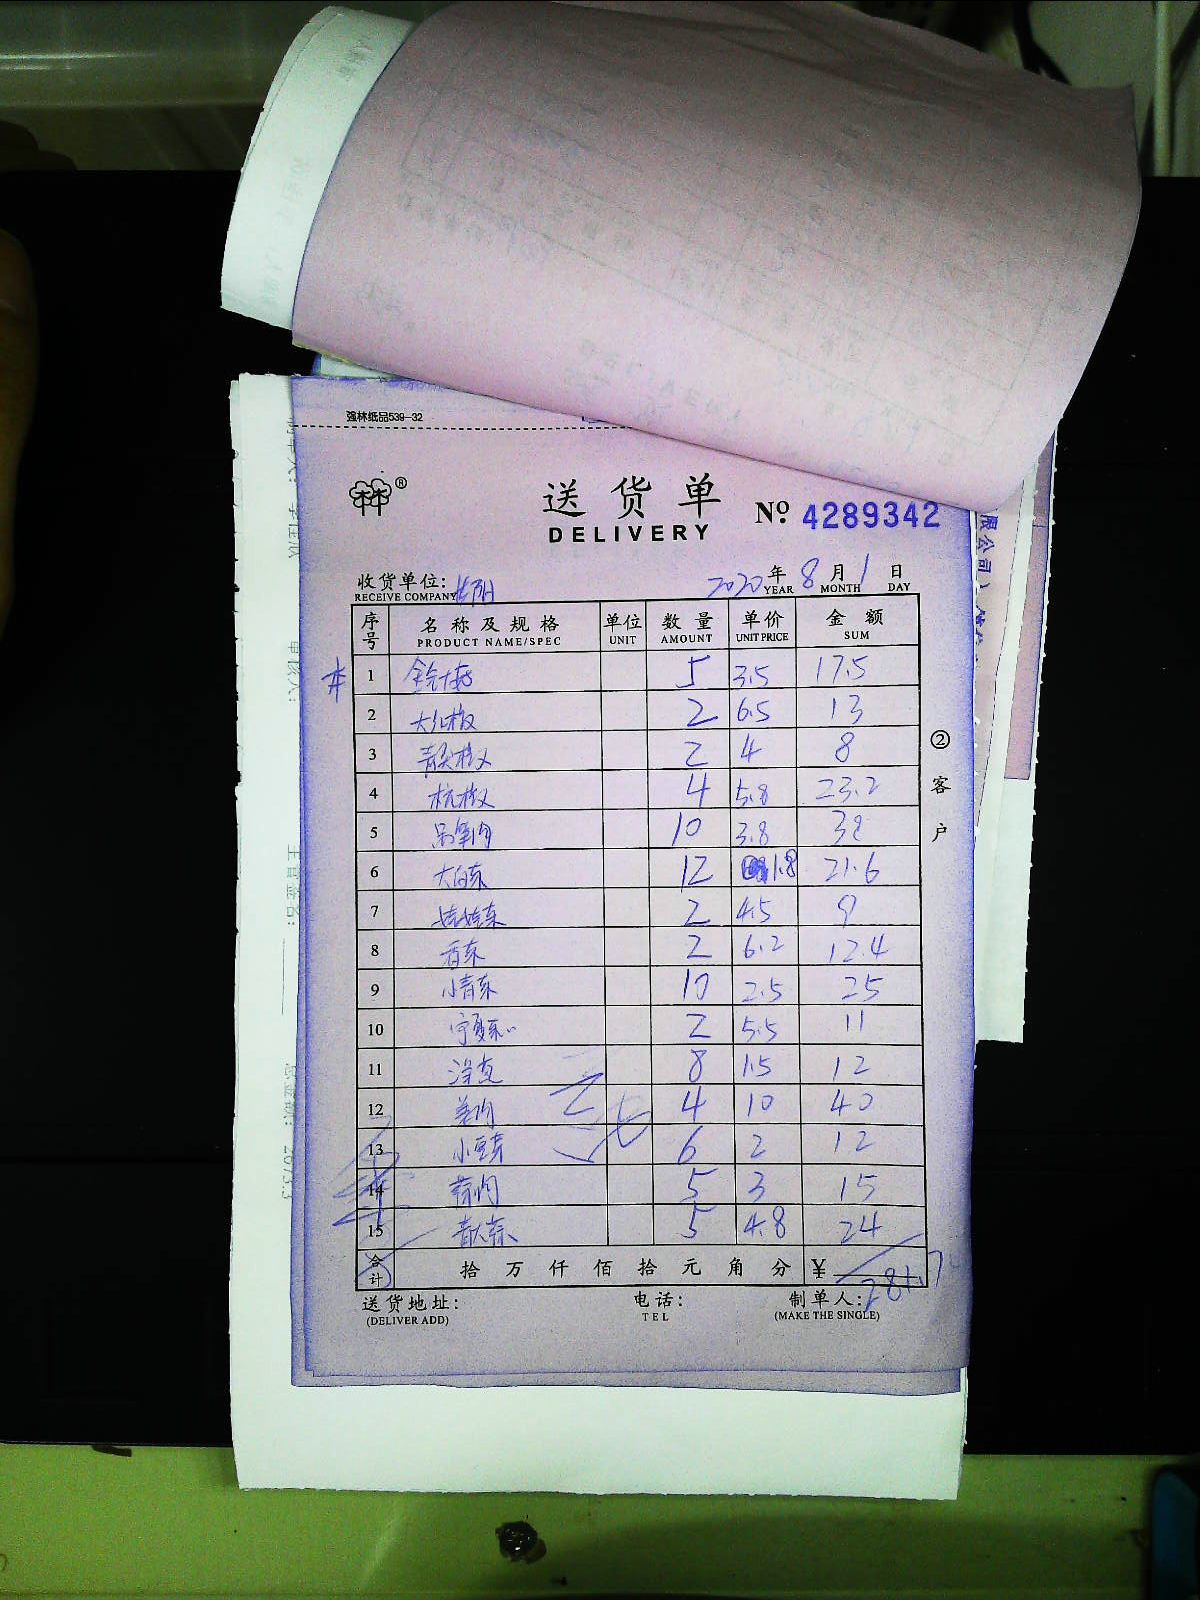 强林纸品539-32
®
送货单 Nº 4289342
DELIVERY
收货单位: 2020年 8月 1日
RECEIVE COMPANY YEAR MONTH DAY
序号 名称及规格 单位 数量 单价 金额
PRODUCT NAME/SPEC UNIT AMOUNT UNIT PRICE SUM
1 5 3.5 17.5
2 2 6.5 13
3 青尖椒 2 4 8
4 杭椒 4 5.8 23.2
5 10 3.8 38
6 大白菜 12 1.8 21.6
7 娃娃菜 2 4.5 9
8 香菜 2 6.2 12.4
9 小青菜 10 2.5 25
10 宁夏菜心 2 5.5 11
11 8 1.5 12
12 姜肉 4 10 40
13 小豆芽 6 2 12
14 蒜肉 5 3 15
15 青大蒜 5 4.8 24
合计 拾 万 仟 佰 拾 元 角 分 ¥ 281.7
送货地址: 电话: 制单人:
(DELIVER ADD) TEL (MAKE THE SINGLE)
②客户
限公司)